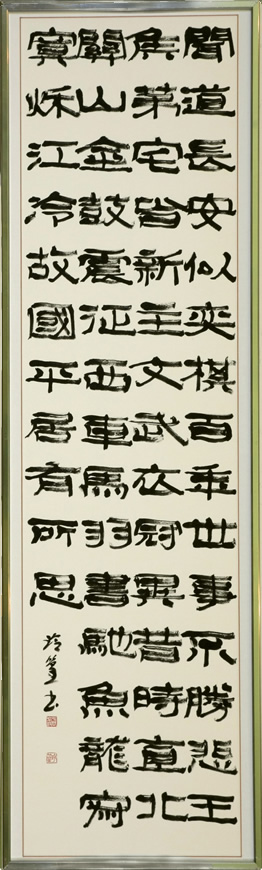 聞道長安似奕棋百年世事不勝悲王
侯第宅皆新主文武衣冠異昔時直北
關山金鼓震征西車馬羽書馳魚龍寂
寞秋江冷故國平居有所思
書